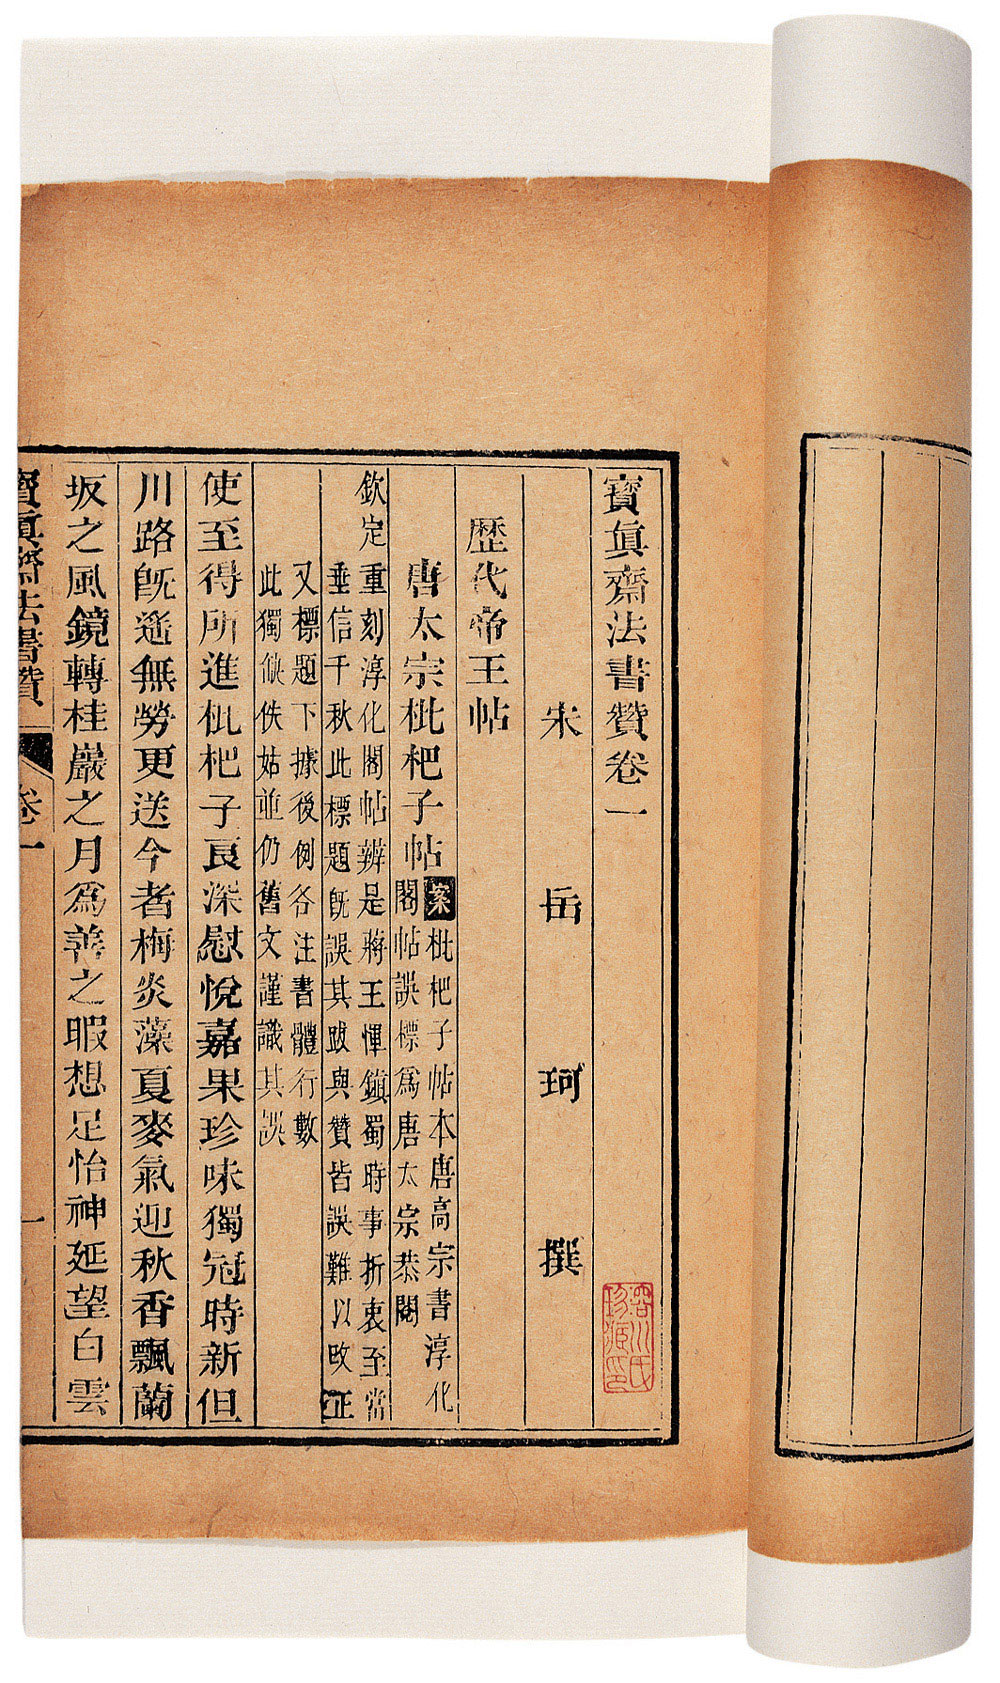 寶眞齋法書贊卷一
宋 岳 珂 撰
川氏
珍藏印
歷代帝王帖
唐太宗枇杷子帖 案 枇杷子帖本唐高宗書淳化
閣帖誤標爲唐太宗恭閱
欽定重刻淳化閣帖辨是蔣王惲鎮蜀時事折衷至當
垂信千秋此標題旣誤其跋與贊皆誤難以改正
又標題下據後例各注書體行數
此獨缺佚姑並仍舊文謹識其誤
使至得所進枇杷子良深慰悅嘉果珍味獨冠時新但
川路旣遙無勞更送今者梅炎藻夏麥氣迎秋香飄蘭
坂之風鏡轉桂巖之月爲善之暇想足怡神延望白雲
寶眞齋法書贊 卷一 一